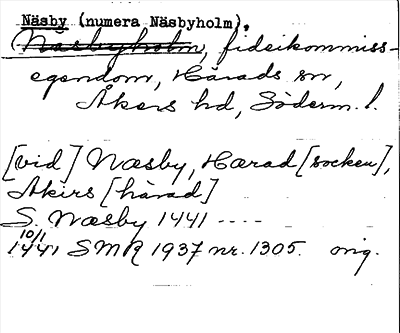 Näsby (numera Näsbyholm),
Näsbyholm, fideikommiss-
egendom, Härads sn,
Åkers hd, Söderm. l.
[vid] Næsby, Hærad [socken],
Akirs [härad]
S. Næsby 1441 ----
10/1
1441 SMR 1937 nr. 1305. orig.